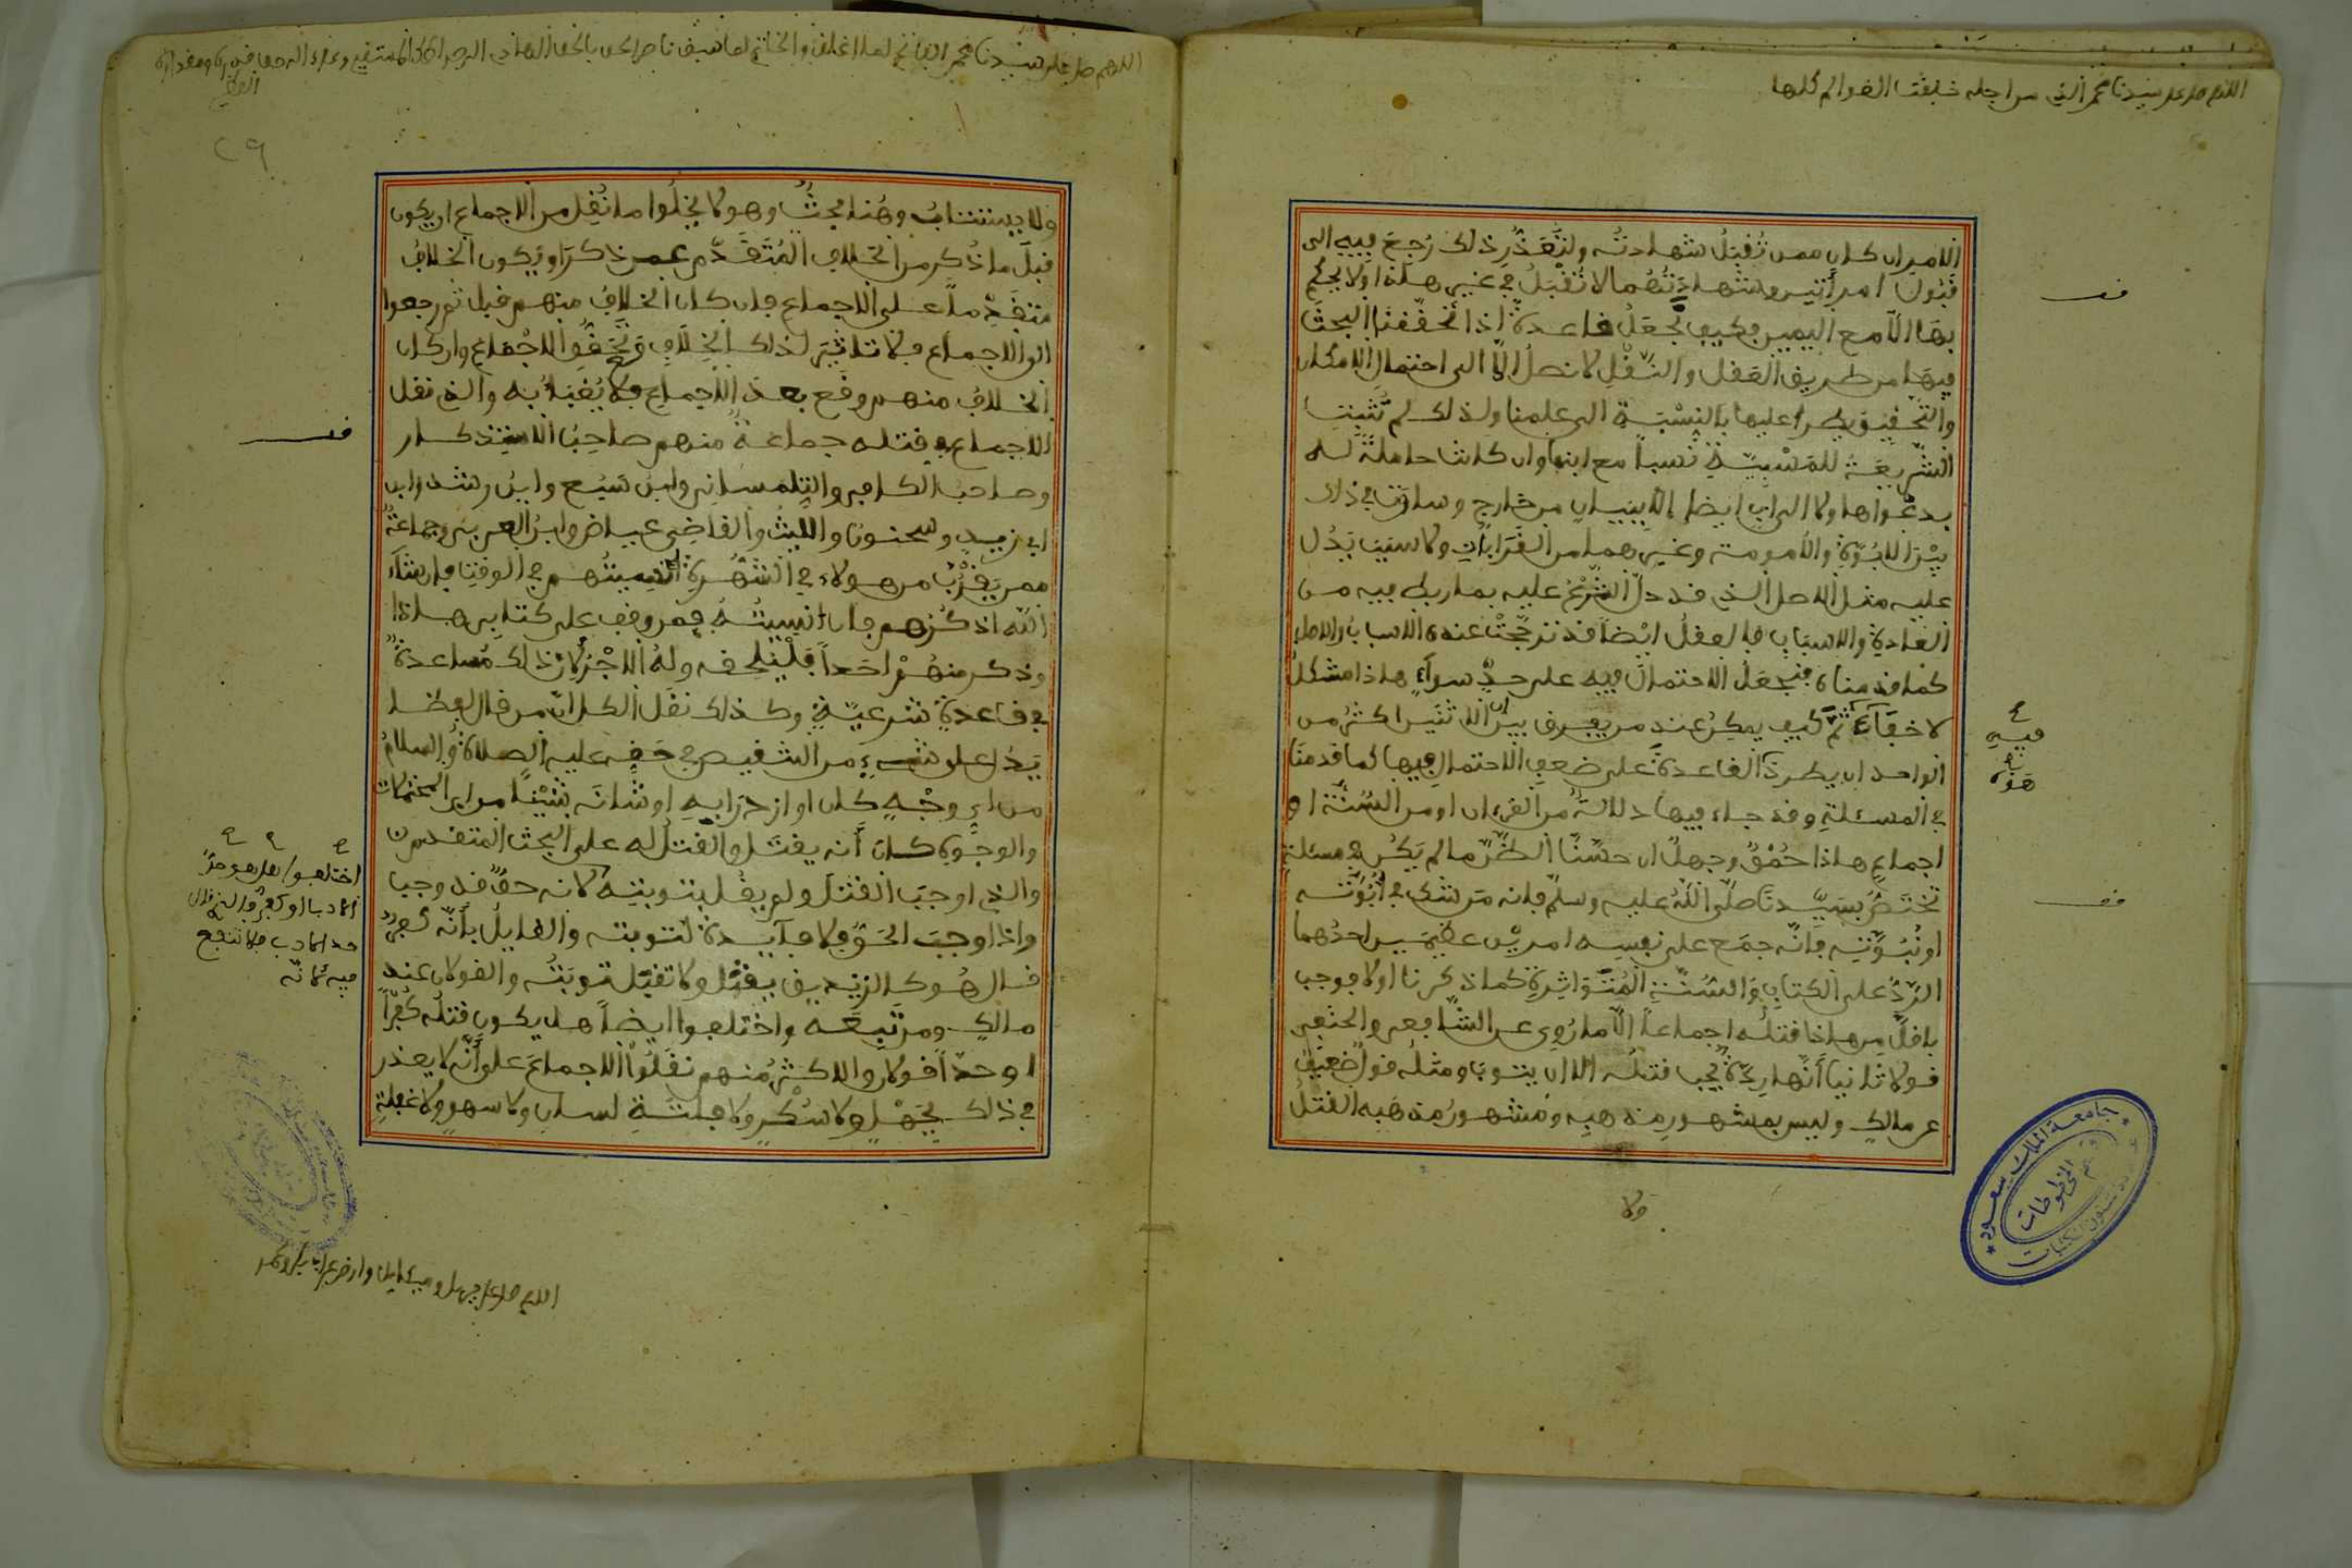 اللهم صل على سيدنا محمد الذي من اجله خلقت العوالم كلها
الامير ان كان ممن تقبل شهادته ولتعذر ذلك رجع فيه الى
قبول امرأتين وشهادتهما لا تقبل في غير هاذا ولا يحكم
بها الا مع اليمين فكيف تجعل قاعدة اذا تحققنا البحث
فيها من طريق العقل والنقل لا نصل الا الى احتمال الامكان
والتحقيق يطرأ عليها بالنسبة الى علمنا ولذلك لم تثبت
الشريعة للمسبية نسبا مع ابنها وان كانت حاملة له
بدعواها ولا الى اب ايضا الا ببيان من خارج وساوت في ذلك
بين الابوة والامومة وغيرهما من القرابات ولا سبب يدل
عليه مثل الاصل الذي قد دل الشرع عليه بما ربط فيه من
العادة والاسباب فالعقل ايضا قد ترجحت عنده الاسباب والاصل
كما قدمناه فنجعل الاحتمال فيه على حد سواء هاذا مشكل
لا خفاء ثم كيف يمكن عند من يعرف بين ان الاثنين اكثر من
الواحد ان يطرد القاعدة على ضعف الاحتمال فيها كما قدمنا
فيه
هذه
في المسئلة وقد جاء فيها دلالة من القرءان او من السنة او
اجماع هاذا حمق وجهل ان حسنا الظن ما لم يكن في مسئلة
تختص بسيدنا صلى الله عليه وسلم فانه من شك في ابوته
او نبوته فانه جمع على نفسه امرين عظيمين احدهما
الرد على الكتاب والسنة المتواترة كما ذكرنا اولا فوجب
باقل من هاذا قتله اجماعا الا ما روي عن الشافعي والحنفي
قولا ثانيا انها ردة يجب قتله الا ان يتوب ومثله قول ضعيف
عن مالك وليس بمشهور مذهبه ومشهور مذهبه القتل
ولا
جامعة الملك سعود
قسم المخطوطات
اللهم صل على سيدنا محمد الفاتح لما اغلق والخاتم لما سبق ناصر الحق بالحق الهادي الى صراطك المستقيم وعلى ءاله حق قدره ومقداره
العظيم
٢٩
ولا يستتاب وهنا بحث وهو لا يخلوا ما نقل من الاجماع ان يكون
قبل ما ذكر من الخلاف المتقدم عمن ذكر او يكون الخلاف
متقدما على الاجماع فان كان الخلاف منهم قبل ثم رجعوا
الى الاجماع فلا تاثير لذلك الخلاف وتحقق الاجماع وان كان
الخلاف منهم وقع بعد الاجماع فلا يعبأ به والذي نقل
الاجماع في قتله جماعة منهم صاحب الاستذكار
وصاحب الكافي والتلمساني وابن سبع وابن رشد وابن
ابي زيد وسحنون والليث والقاضي عياض وابن العربي وجماعة
ممن يقرب من هولاء في الشهرة انسيتهم في الوقت فان شاء
الله اذكرهم فان انسيته فمن وقف على كتابي هاذا
وذكر منهم احدا فليلحقه وله الاجر لان ذلك مساعدة
في قاعدة شرعية وكذلك نقل الكل ان من قال لفظا
يدل على شيء من التنقيص في حقه عليه الصلاة والسلام
من اي وجه كان او ازدرا به او شانه شيئا من اي المحتملات
والوجوه كان أنه يقتل والقتل له على البحث المتقدم من
والذي اوجب القتل ولم يقل بتوبته لانه حق قد وجب
واذا وجب الحق فلا فآيدة لتوبته والقايل بأنه كفر
قال هو كالزنديق يقتل ولا تقبل توبته والقولان عند
مالك ومن تبعه واختلفوا ايضا هل يكون قتله كفرا
او حدا قولان والاكثر منهم نقلوا الاجماع على أنه لا يعذر
في ذلك بجهل ولا سكر ولا فلتة لسان ولا سهو ولا غفلة
اختلفوا هل هو حد
حد الادب فلا تنفع